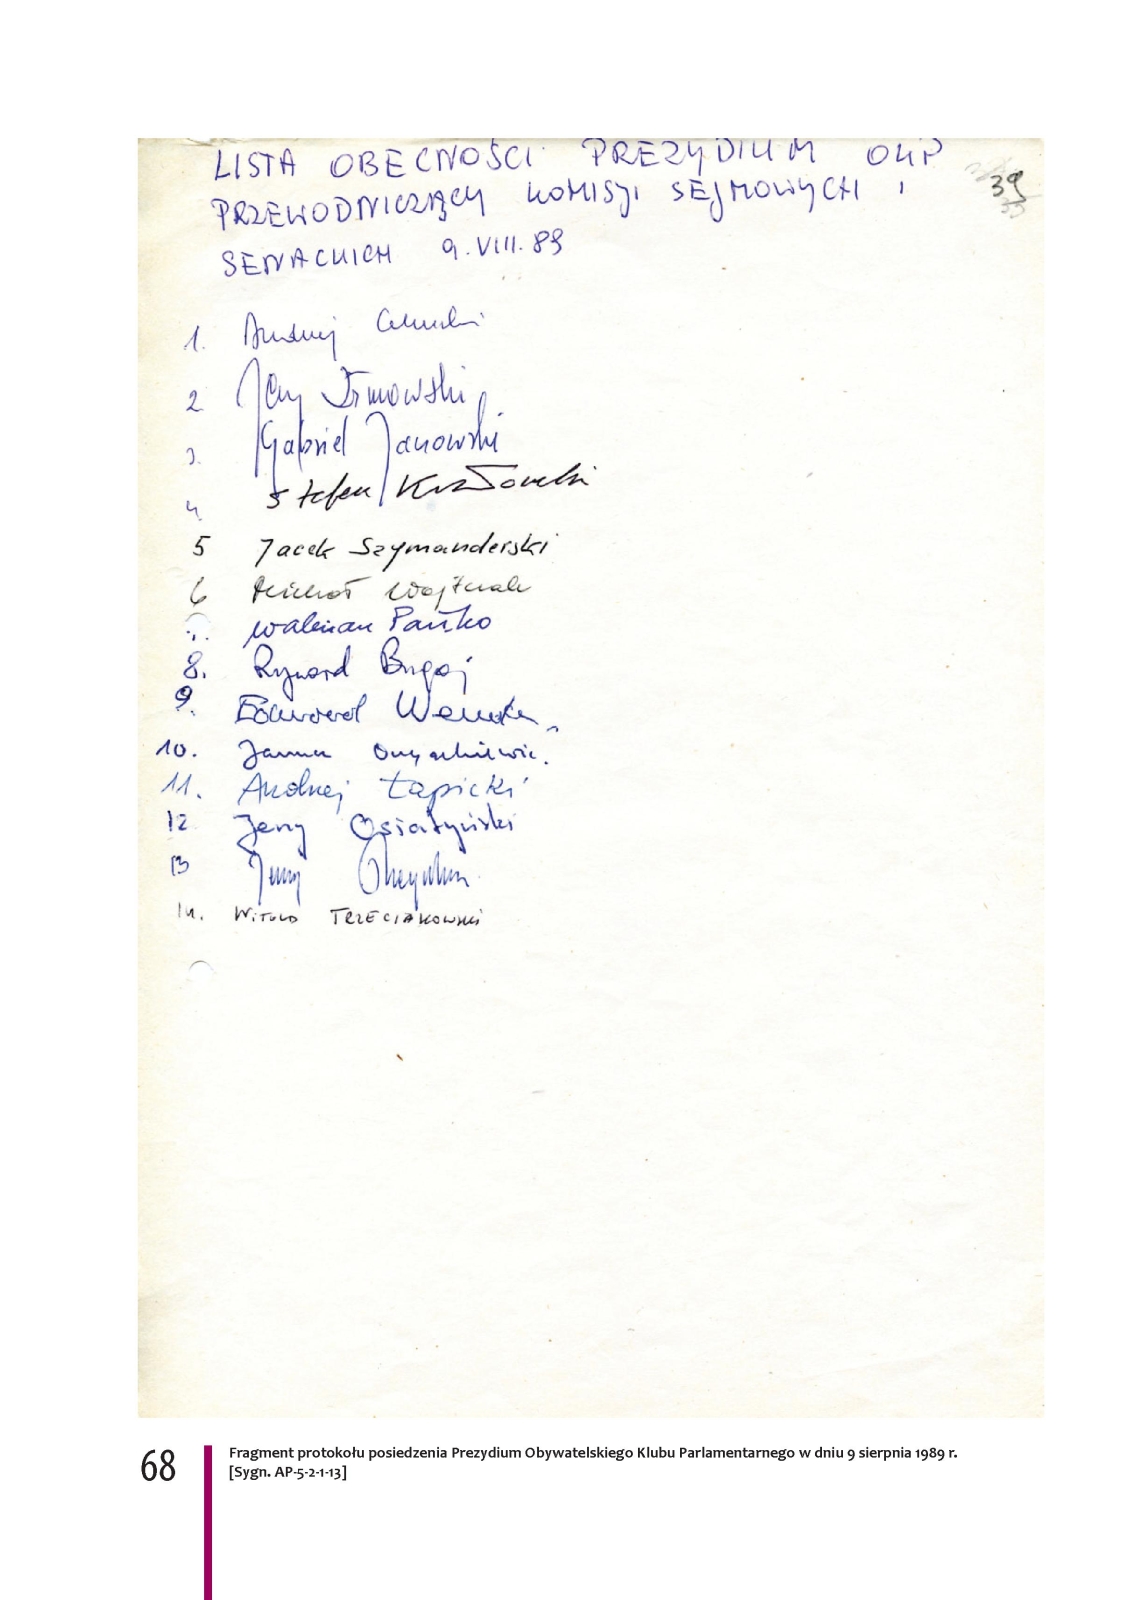 LISTA OBECNOŚCI PREZYDIUM OKP
39
PRZEWODNICZĄCY KOMISJI SEJMOWYCH I
SENACKICH 9.VIII.89
1. Andrzej
2 Jerzy Dymowski
3. Gabriel Janowski
4 Stefan
5 Jacek Szymanderski
6 Michał Wojtczak
7. Walerian Pańko
8. Ryszard Bugaj
9. Edward Wende
10. Janusz Onyszkiewicz
11. Andrzej Łapicki
12 Jerzy Osiatyński
13 Jerzy
14. WITOLD TRZECIAKOWSKI
68
Fragment protokołu posiedzenia Prezydium Obywatelskiego Klubu Parlamentarnego w dniu 9 sierpnia 1989 r.
[Sygn. AP-5-2-1-13]